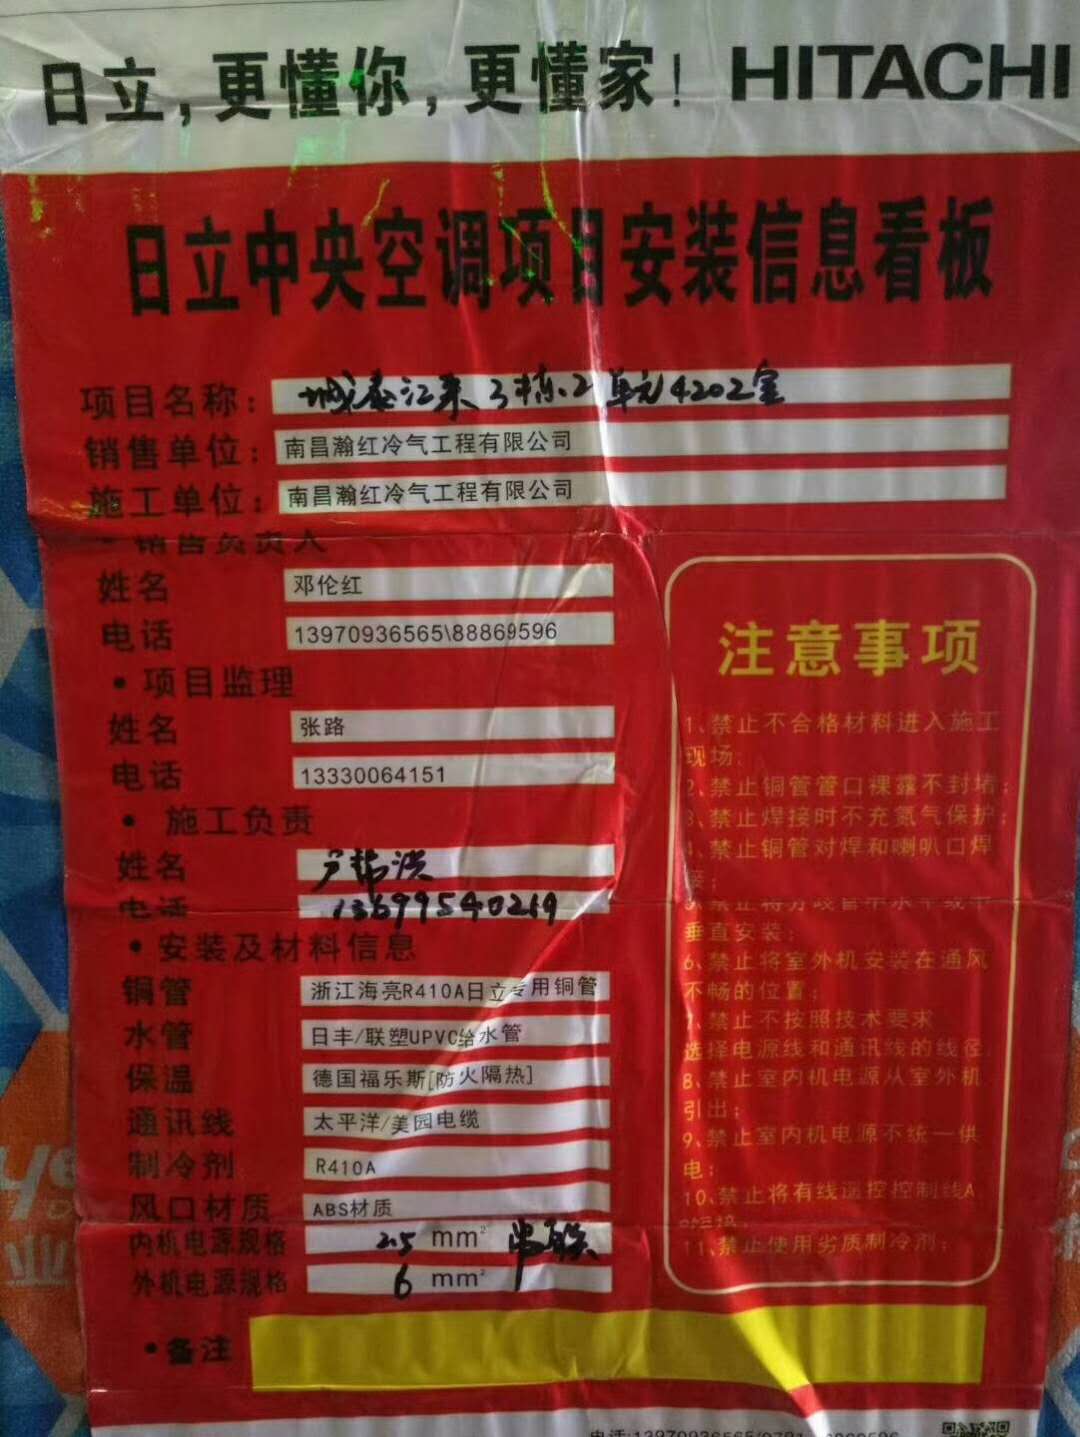 日立,更懂你,更懂家! HITACHI
日立中央空调项目安装信息看板
项目名称: 城泰江来3栋2单元4202室
销售单位: 南昌瀚红冷气工程有限公司
施工单位: 南昌瀚红冷气工程有限公司
·销售负责人
姓名 邓伦红
电话 13970936565\88869596
·项目监理
姓名 张路
电话 13330064151
·施工负责
姓名
电话 13699540219
·安装及材料信息
铜管 浙江海亮R410A日立专用铜管
水管 日丰/联塑UPVC给水管
保温 德国福乐斯[防火隔热]
通讯线 太平洋/美园电缆
制冷剂 R410A
风口材质 ABS材质
内机电源规格 2.5 mm² 串联
外机电源规格 6 mm²
·备注
注意事项
1、禁止不合格材料进入施工
现场;
2、禁止铜管管口裸露不封堵;
3、禁止焊接时不充氮气保护;
4、禁止铜管对焊和喇叭口焊
接;
5、禁止将分歧管非水平或非
垂直安装;
6、禁止将室外机安装在通风
不畅的位置;
7、禁止不按照技术要求
选择电源线和通讯线的线径
8、禁止室内机电源从室外机
引出;
9、禁止室内机电源不统一供
电;
10、禁止将有线遥控控制线A
B短接;
11、禁止使用劣质制冷剂;
电话:13970936565/0791